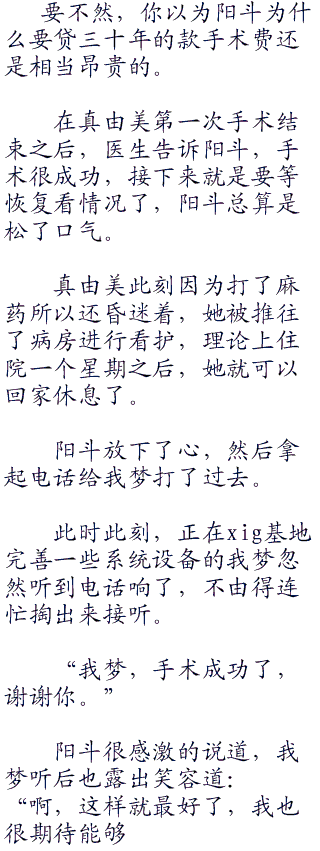 要不然，你以为阳斗为什
么要贷三十年的款手术费还
是相当昂贵的。
在真由美第一次手术结
束之后，医生告诉阳斗，手
术很成功，接下来就是要等
恢复看情况了，阳斗总算是
松了口气。
真由美此刻因为打了麻
药所以还昏迷着，她被推往
了病房进行看护，理论上住
院一个星期之后，她就可以
回家休息了。
阳斗放下了心，然后拿
起电话给我梦打了过去。
此时此刻，正在xig基地
完善一些系统设备的我梦忽
然听到电话响了，不由得连
忙掏出来接听。
“我梦，手术成功了，
谢谢你。”
阳斗很感激的说道，我
梦听后也露出笑容道：
“啊，这样就最好了，我也
很期待能够